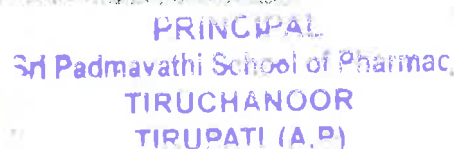 PRINCIPAL
Sri Padmavathi School of Pharmac
TIRUCHANOOR
TIRUPATI (A.P)